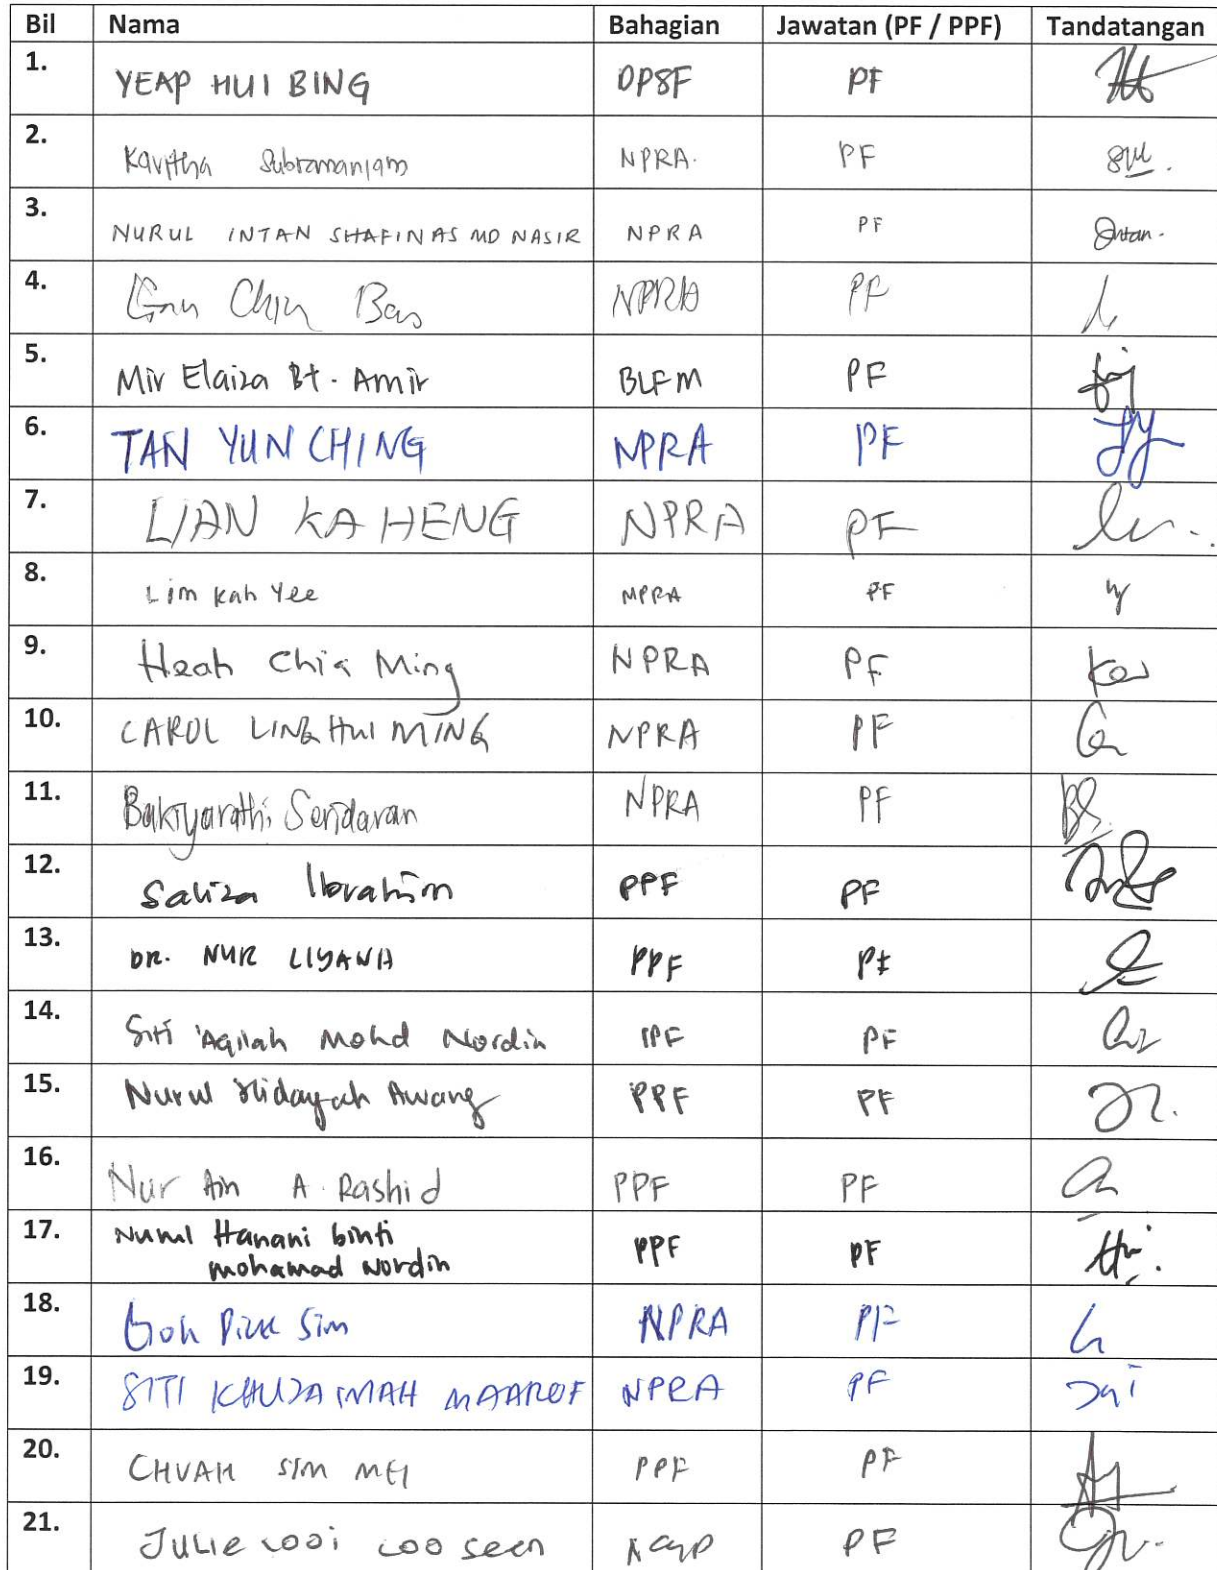 Bil Nama Bahagian Jawatan (PF / PPF) Tandatangan
1. YEAP HUI BING OPSF PF
2. Kavitha Subramaniam NPRA. PF
3. NURUL INTAN SHAFINAS MD NASIR NPRA PF Intan.
4. Chin NPRA PF
5. Mir Elaiza Bt. Amir BLFM PF
6. TAN YUN CHING NPRA PF
7. LIAN KA HENG NPRA PF
8. Lim Kah Yee NPRA PF
9. Heah Chia Ming NPRA PF
10. CAROL LING HUI MING NPRA PF
11. Bakiyarathi Sendaran NPRA PF BS.
12. Saliza Ibrahim PPF PF
13. DR. NUR LIYANA PPF PF
14. Siti 'Aqilah Mohd Nordin PPF PF
15. Nurul Hidayah Awang PPF PF
16. Nur Ain A. Rashid PPF PF
17. Nurul Hanani binti
mohamad Nordin PPF PF
18. Goh Sim NPRA PF
19. SITI KHUZAIMAH MAAROF NPRA PF
20. CHUAH SIM MEI PPF PF
21. Julie Looi Loo Seen PF